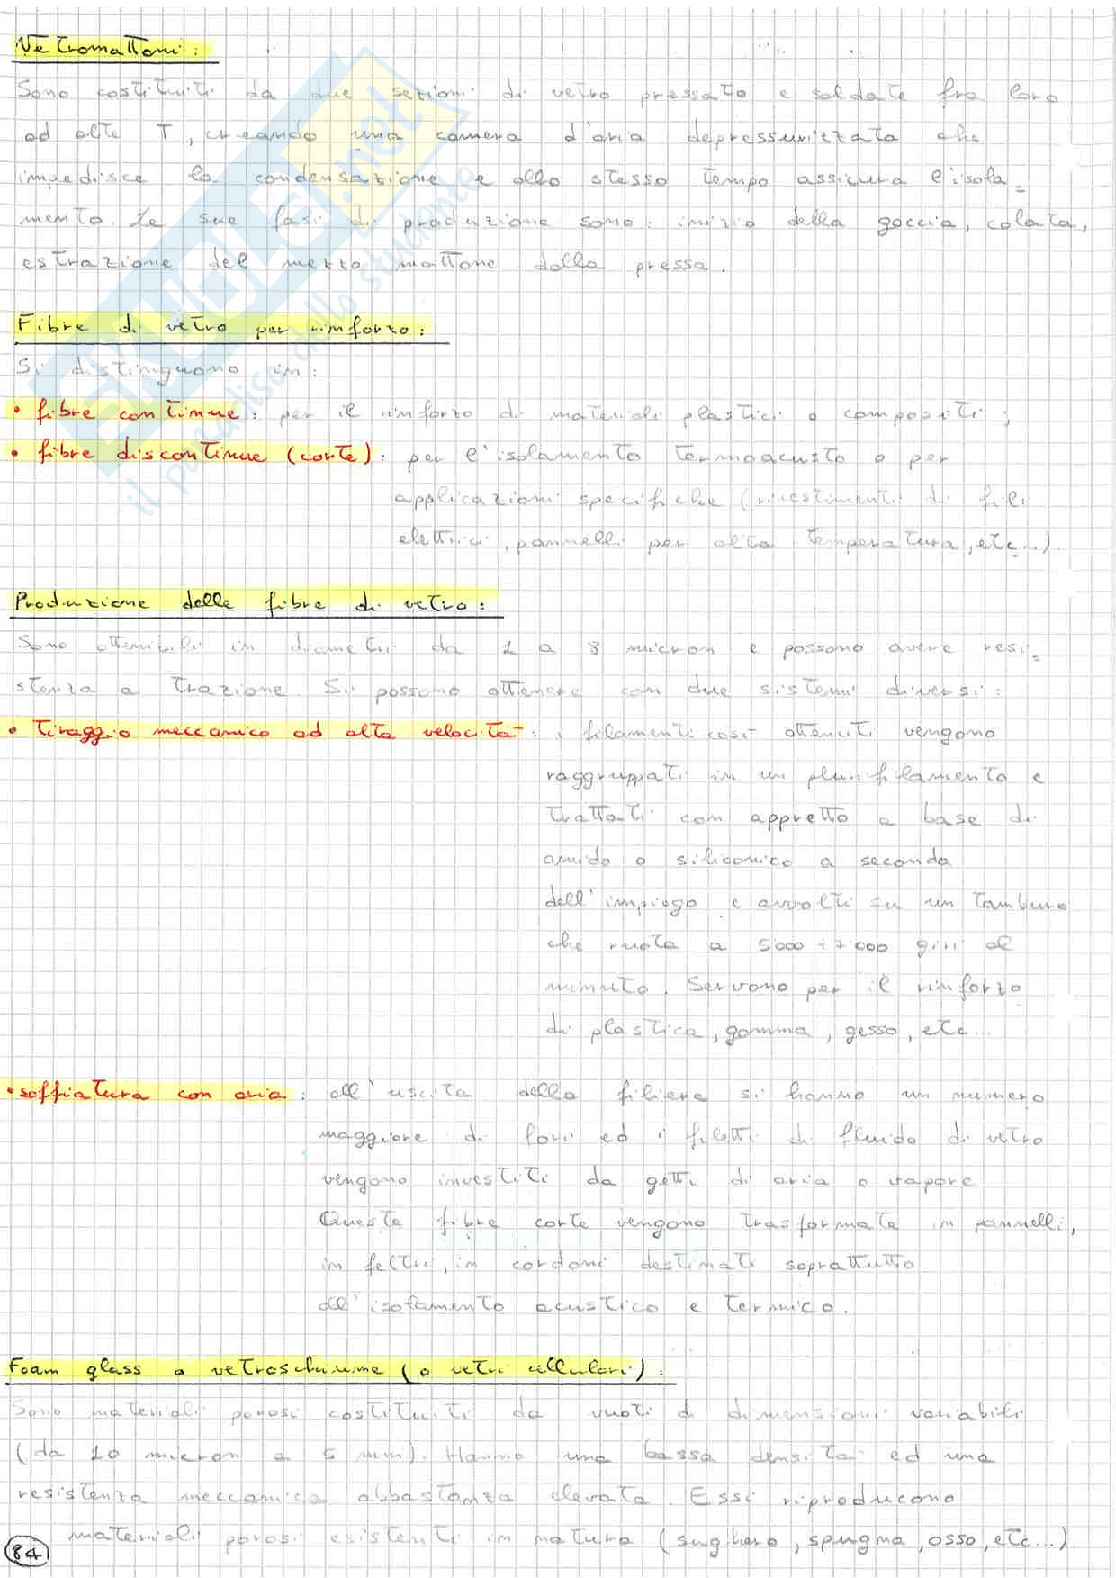 Vetromattoni:
Sono costituiti da due sezioni di vetro pressato e saldate fra loro
ad alte T, creando una camera d'aria depressurizzata che
impedisce la condensazione e allo stesso tempo assicura l'isola=
mento. Le sue fasi di produzione sono: inizio della goccia, colata,
estrazione del mezzo mattone dalla pressa.
Fibre di vetro per rinforzo:
Si distinguono in:
• fibre continue: per il rinforzo di materiali plastici o compositi;
• fibre discontinue (corte): per l'isolamento termoacusto o per
applicazioni specifiche (rivestimenti di fili
elettrici, pannelli per alta temperatura, etc...).
Produzione delle fibre di vetro:
Sono ottenibili in diametri da 1 a 8 micron e possono avere resi=
stenza a trazione. Si possono ottenere con due sistemi diversi:
• tiraggio meccanico ad alta velocità: i filamenti così ottenuti vengono
raggruppati in un plurifilamento e
trattati con appretto a base di
amido o siliconico a seconda
dell'impiego e avvolti su un tamburo
che ruota a 5000÷7000 giri al
minuto. Servono per il rinforzo
di plastica, gomma, gesso, etc...
• soffiatura con aria: all'uscita della filiera si hanno un numero
maggiore di fori ed i filetti di fluido di vetro
vengono investiti da getti di aria o vapore
Queste fibre corte vengono trasformate in pannelli,
in feltri, in cordoni destinati soprattutto
all'isolamento acustico e termico.
Foam glass o vetroschiume (o vetri cellulari):
Sono materiali porosi costituiti da vuoti di dimensioni variabili
(da 10 micron a 5 mm). Hanno una bassa densità ed una
resistenza meccanica abbastanza elevata. Essi riproducono
materiali porosi esistenti in natura (sughero, spugna, osso, etc...)
84